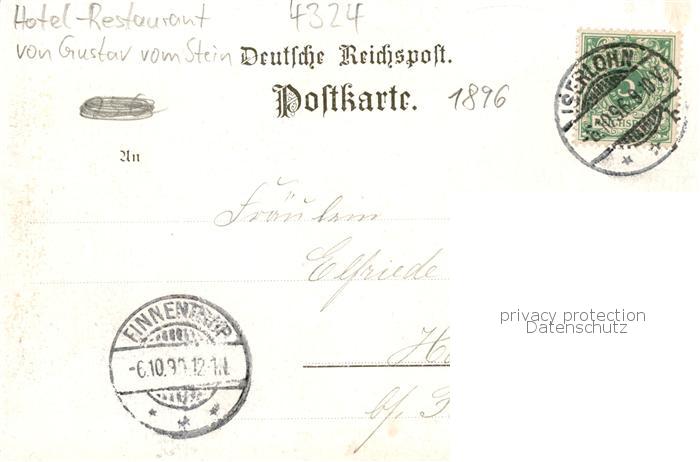 Hotel-Restaurant 4324
von Gustav vom Stein
Deutsche Reichspost.
Postkarte. 1896
ISERLOHN
REICHSPOST
An
Fräulein
Elfriede
privacy protection
Datenschutz
FINNENTROP
-6.10.9
12-1N.